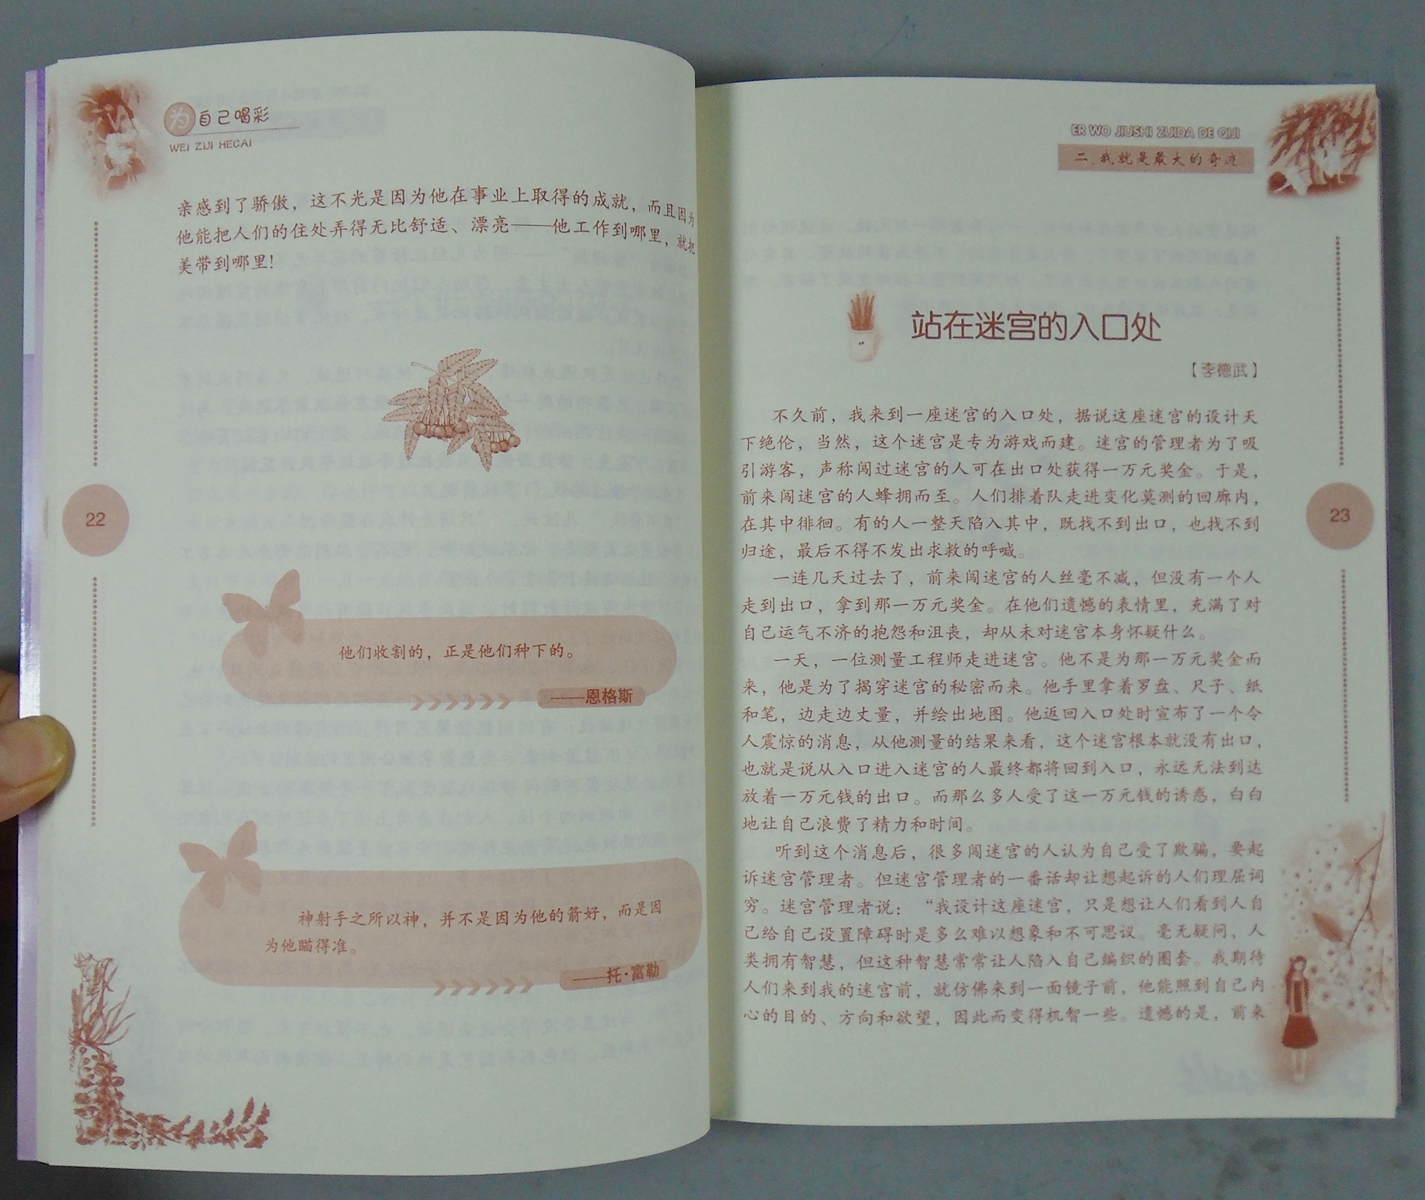 为自己喝彩
WEI ZIJI HECAI
亲感到了骄傲，这不光是因为他在事业上取得的成就，而且因为
他能把人们的住处弄得无比舒适、漂亮——他工作到哪里，就把
美带到哪里！
22
他们收割的，正是他们种下的。
——恩格斯
神射手之所以神，并不是因为他的箭好，而是因
为他瞄得准。
——托·富勒
ER WO JIUSHI ZUIDA DE QIJI
二、我就是最大的奇迹
站在迷宫的入口处
【李德武】
不久前，我来到一座迷宫的入口处，据说这座迷宫的设计天
下绝伦，当然，这个迷宫是专为游戏而建。迷宫的管理者为了吸
引游客，声称闯过迷宫的人可在出口处获得一万元奖金。于是，
前来闯迷宫的人蜂拥而至。人们排着队走进变化莫测的回廊内，
在其中徘徊。有的人一整天陷入其中，既找不到出口，也找不到
归途，最后不得不发出求救的呼喊。
一连几天过去了，前来闯迷宫的人丝毫不减，但没有一个人
走到出口，拿到那一万元奖金。在他们遗憾的表情里，充满了对
自己运气不济的抱怨和沮丧，却从未对迷宫本身怀疑什么。
一天，一位测量工程师走进迷宫。他不是为那一万元奖金而
来，他是为了揭穿迷宫的秘密而来。他手里拿着罗盘、尺子、纸
和笔，边走边丈量，并绘出地图。他返回入口处时宣布了一个令
人震惊的消息，从他测量的结果来看，这个迷宫根本就没有出口，
也就是说从入口进入迷宫的人最终都将回到入口，永远无法到达
放着一万元钱的出口。而那么多人受了这一万元钱的诱惑，白白
地让自己浪费了精力和时间。
听到这个消息后，很多闯迷宫的人认为自己受了欺骗，要起
诉迷宫管理者。但迷宫管理者的一番话却让想起诉的人们理屈词
穷。迷宫管理者说：“我设计这座迷宫，只是想让人们看到人自
己给自己设置障碍时是多么难以想象和不可思议。毫无疑问，人
类拥有智慧，但这种智慧常常让人陷入自己编织的圈套。我期待
人们来到我的迷宫前，就仿佛来到一面镜子前，他能照到自己内
心的目的、方向和欲望，因此而变得机智一些。遗憾的是，前来
23